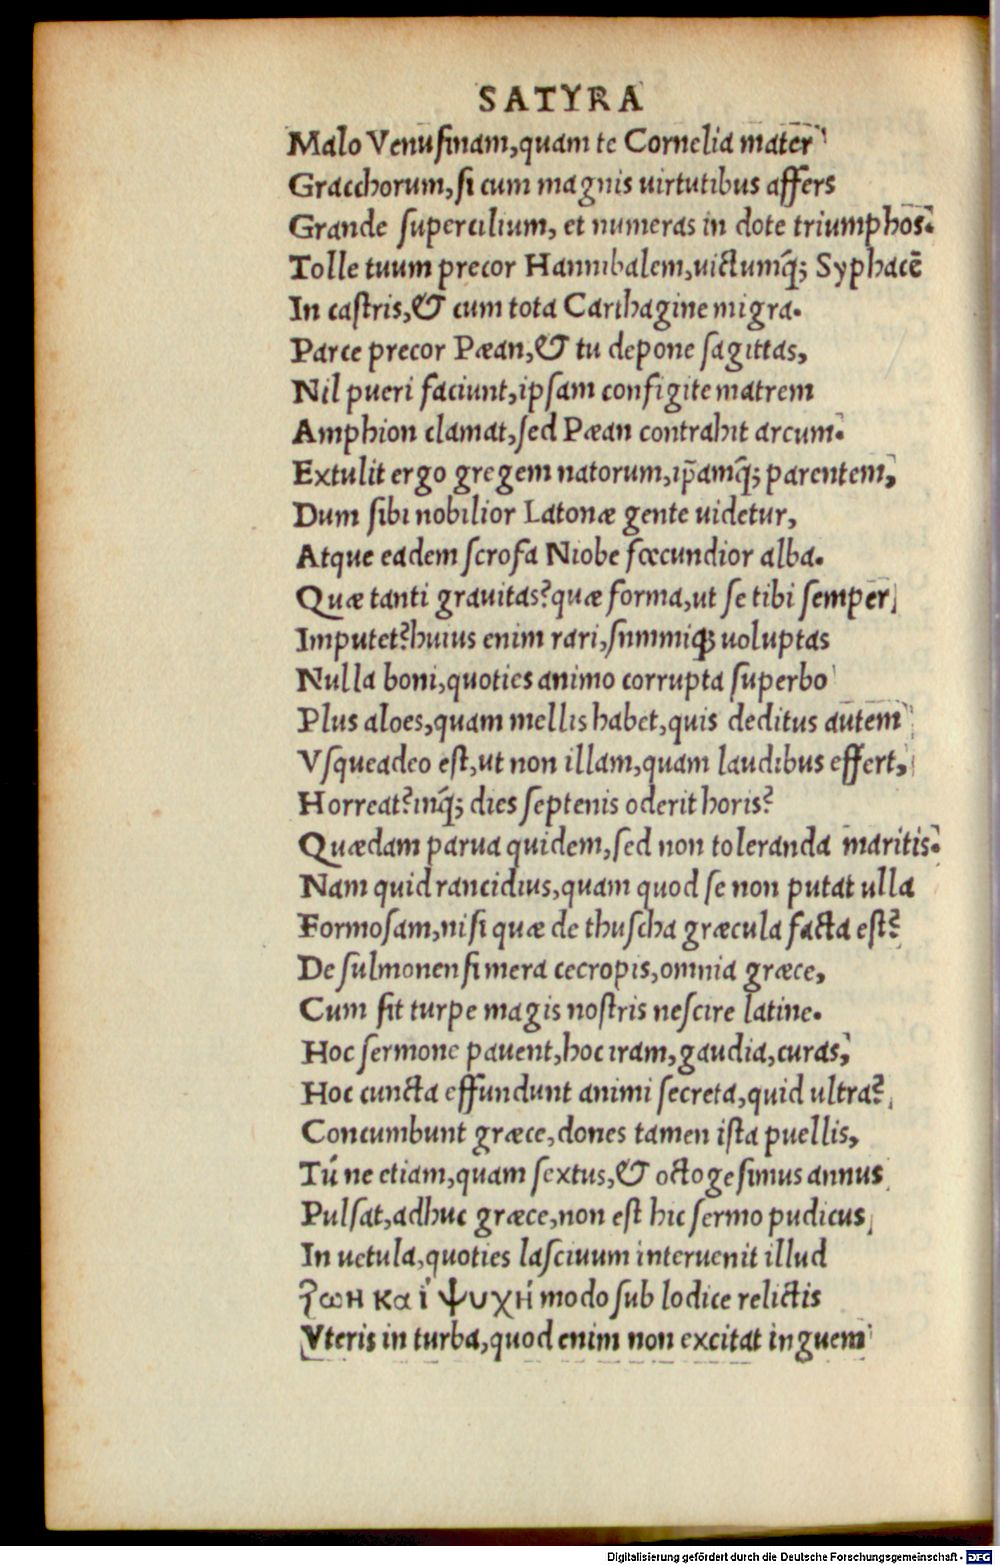 SATYRA
Malo Venusinam,quam te Cornelia mater
Gracchorum,si cum magnis uirtutibus affers
Grande supercilium, et numeras in dote triumphos.
Tolle tuum precor Hannibalem,uictumq̃; Syphacẽ
In castris,& cum tota Carthagine migra.
Parce precor Pæan,& tu depone sagittas,
Nil pueri faciunt,ipsam configite matrem
Amphion clamat,sed Pæan contrahit arcum.
Extulit ergo gregem natorum,ip̃amq̃; parentem,
Dum sibi nobilior Latonæ gente uidetur,
Atque eadem scrofa Niobe fœcundior alba.
Quæ tanti grauitas?quæ forma,ut se tibi semper
Imputet?huius enim rari,summiq; uoluptas
Nulla boni,quoties animo corrupta superbo
Plus aloes,quam mellis habet,quis deditus autem
Vsqueadeo est,ut non illam,quam laudibus effert,
Horreat?inq̃; dies septenis oderit horis?
Quædam parua quidem,sed non toleranda maritis.
Nam quid rancidius,quam quod se non putat ulla
Formosam,nisi quæ de thuscha græcula facta est?
De sulmonensi mera cecropis,omnia græce,
Cum sit turpe magis nostris nescire latine.
Hoc sermone pauent,hoc iram,gaudia,curas,
Hoc cuncta effundunt animi secreta,quid ultra?
Concumbunt græce,dones tamen ista puellis,
Tú ne etiam,quam sextus,& octogesimus annus
Pulsat,adhuc græce,non est hic sermo pudicus
In uetula,quoties lasciuum interuenit illud
ζωη και ψυχή modo sub lodice relictis
Vteris in turba,quod enim non excitat inguem
Digitalisierung gefördert durch die Deutsche Forschungsgemeinschaft - DFG